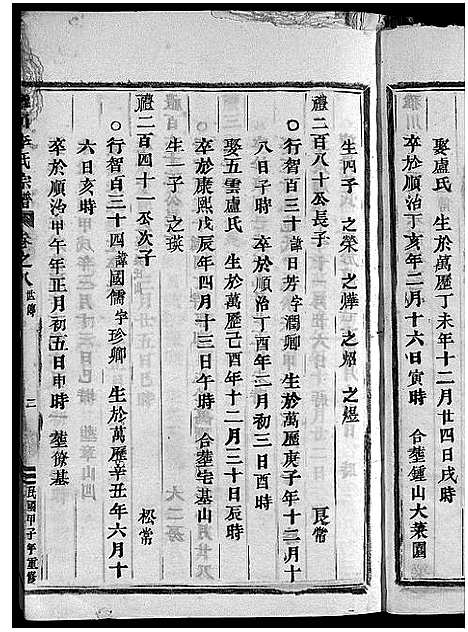 娶盧氏 生於萬歷丁未年十二月廿四日戌時
卒於順治丁亥年二月十六日寅時 合塟鍾山大菜園
生四子 之榮 之燁 之炤 之煜
禮二百八十公長子 良常
○行智百三十諱日芳字潤卿 生於萬歷庚子年十二月十
八日子時 卒於順治丁酉年二月初三日酉時
娶五雲盧氏 生於萬歷己酉年十二月三十日辰時
卒於康熙戊辰年四月十三日午時 合塟宅基山
生子 之琰
禮二百四十一公次子 松常
○行智百三十四諱國儒字珍卿 生於萬歷辛丑年六月十
六日亥時
卒於順治甲午年正月初五日申時 塟僚基
李氏宗譜 卷之八 世傳 三 民國甲子年重修